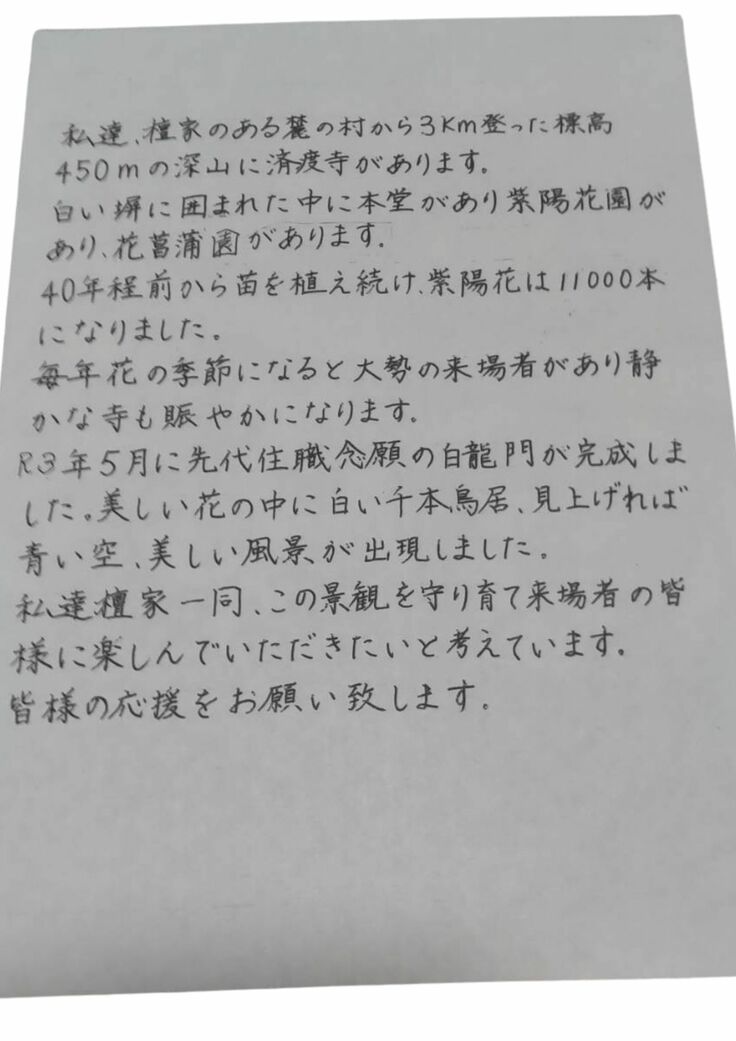 私達、檀家のある麓の村から3Km登った標高
450mの深山に済度寺があります。
白い塀に囲まれた中に本堂があり紫陽花園が
あり、花菖蒲園があります。
40年程前から苗を植え続け、紫陽花は11000本
になりました。
毎年花の季節になると大勢の来場者があり静
かな寺も賑やかになります。
R3年5月に先代住職念願の白龍門が完成しま
した。美しい花の中に白い千本鳥居、見上げれば
青い空、美しい風景が出現しました。
私達檀家一同、この景観を守り育て来場者の皆
様に楽しんでいただきたいと考えています。
皆様の応援をお願い致します。